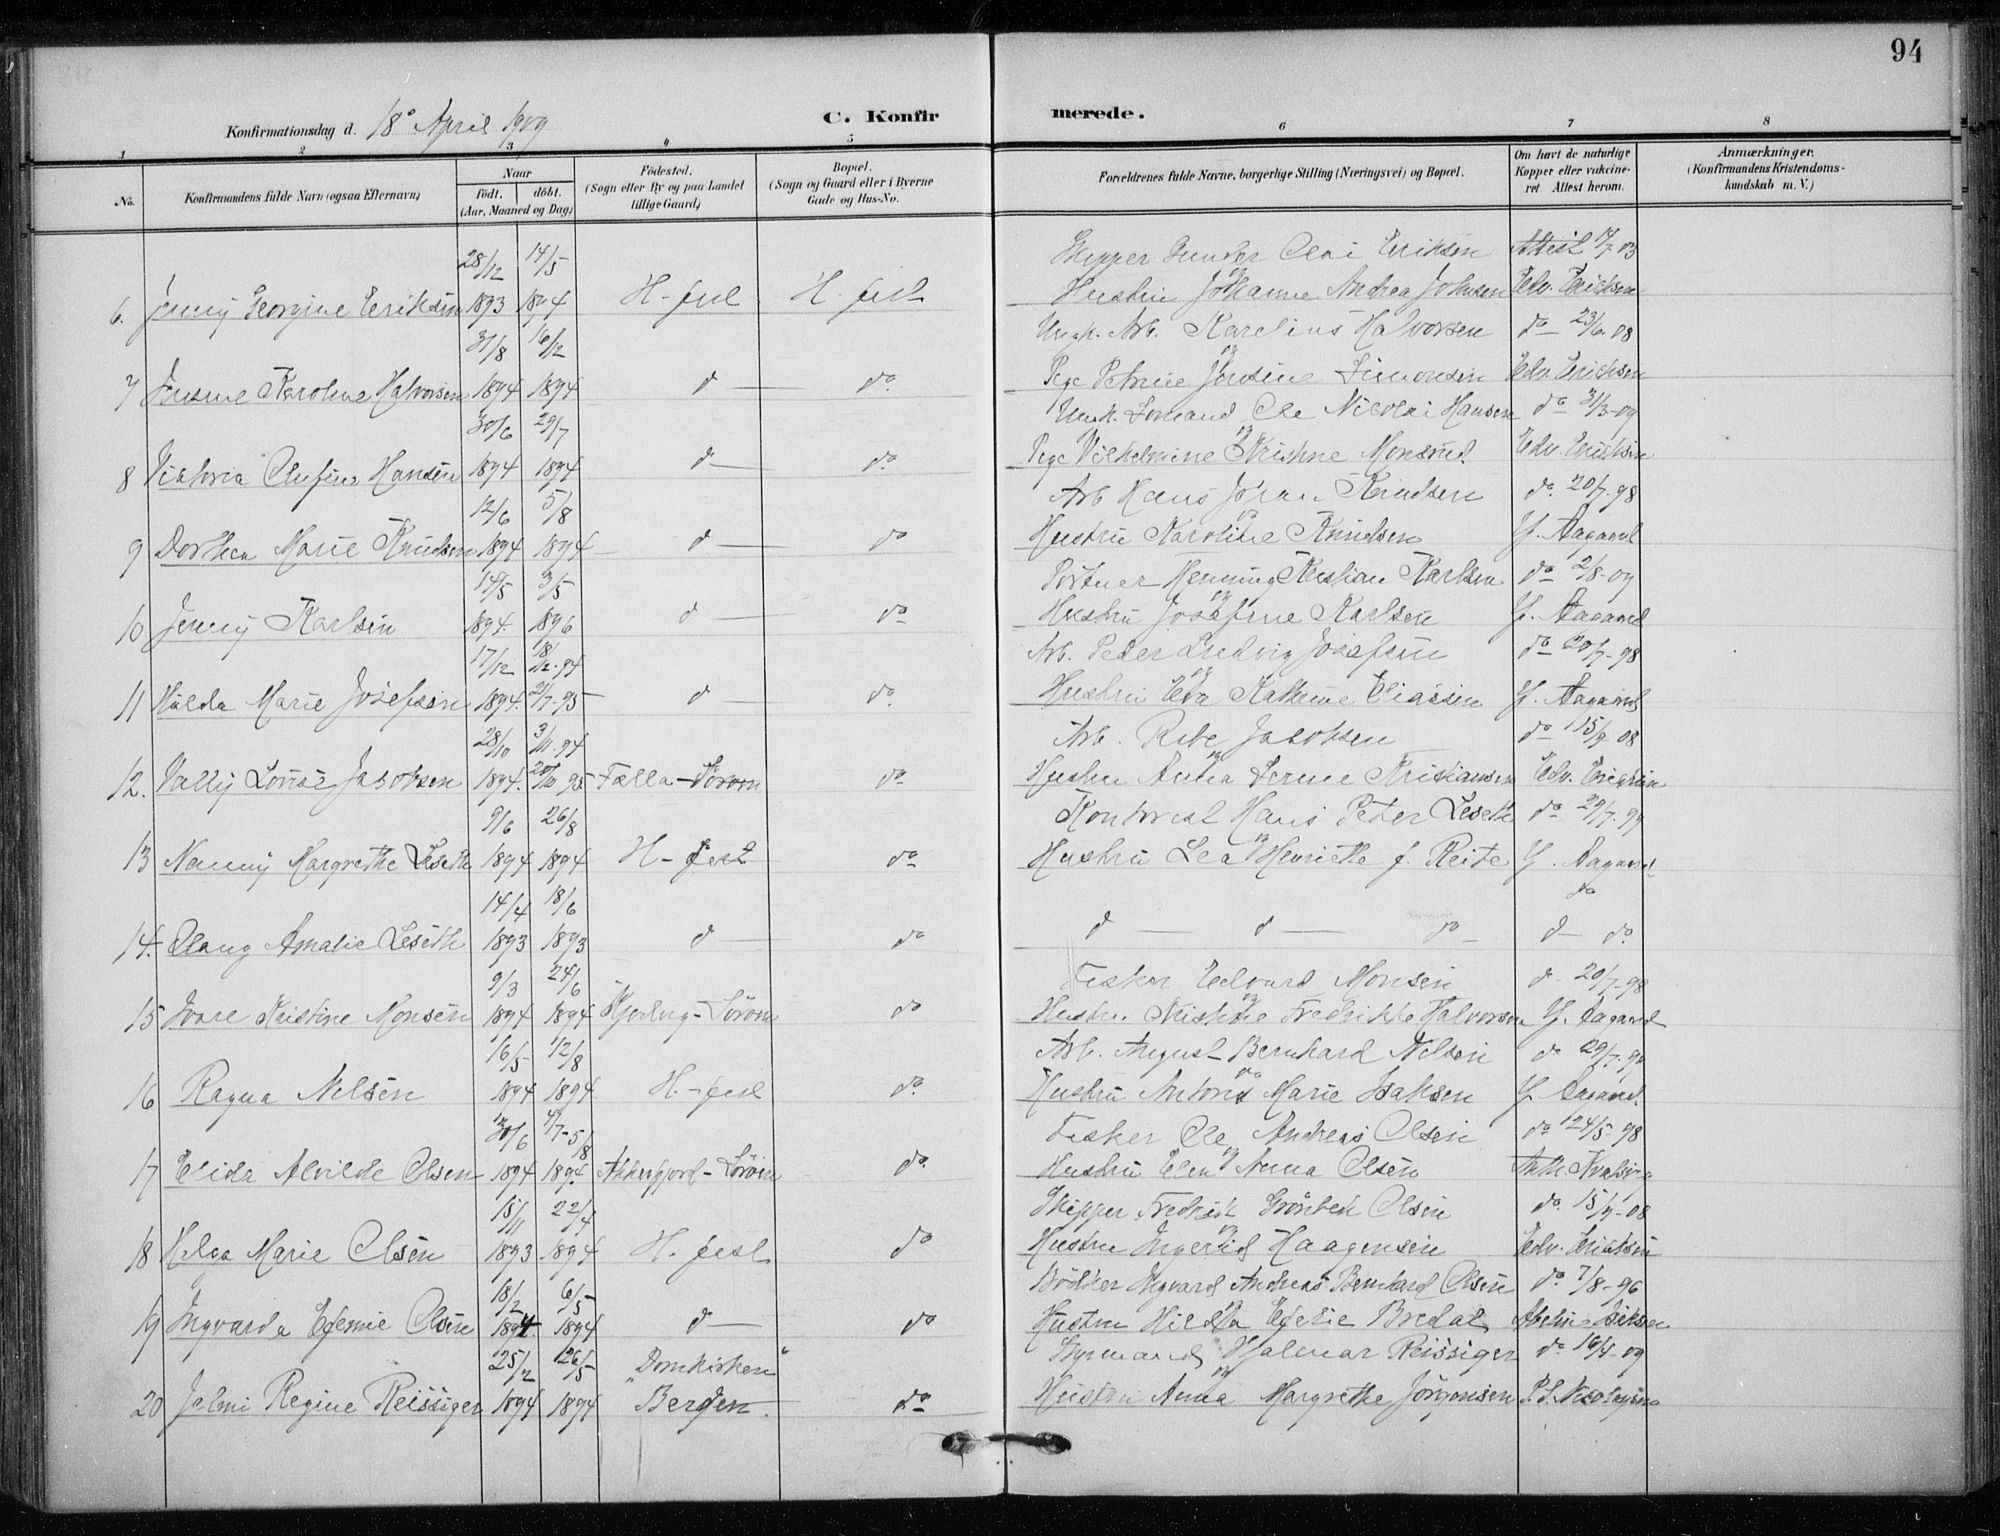 94
Konfirmationsdag d. 18de April 1909
C. Konfirmerede.
1 2 3 4 5 6 7 8
No.
Konfirmandens fulde Navn (ogsaa Efternavn)
Naar
født. døbt.
(Aar, Maaned og Dag)
Födested.
(Sogn eller By og paa Landet
tillige Gaard)
Bopæl.
(Sogn og Gaard eller i Byerne
Gade og Hus-No.
Forældrenes fulde Navne, borgerlige Stilling (Næringsvei) og Bopæl.
Om havt de naturlige
Kopper eller vakcine-
ret. Attest herom.
Anmærkninger.
(Konfirmandens Kristendoms-
kundskab m. V.)
28/12 14/5 Skipper Olai Eriksen Attest 03
6. Jenny Georgine Eriksen 1893 1894 H-fest H-fest Hustru Johanne Andrea Johnsen Edv. Erichsen
31/8 16/12 Ungk. Arb. Karelius Halvorsen do 23/6-08
7 Karoline Halvorsen 1894 1894 d — do Pige Petrine Jensine Simonsen Edv. Erichsen
30/6 29/7 Ungk. Ole Nicolai Hansen do 31/3-09
8 Viktoria Olufine Hansen 1894 1894 d — do Pige Vilhelmine Kristine Monsrud. Edv. Erichsen
12/6 5/8 Arb Hans Johan Knudsen do. 20/7-98
9 Dorthea Marie Knudsen 1894 1894 d — do Hustru Karoline Knudsen Y. Aagaard
14/5 3/5 Portner Henning Kristian Karlsen do 2/8-09
10 Jenny Karlsen 1894. 1896 d — do Hustru Josefine Karlsen Y. Aagaard
17/12 18/12-94 Arb. Peder Ludvig Josefsen do 20/7-98
11 Hilda Marie Josefsen 1894. 21/7-95 d — do. Hustru Eva Kathrine Eliassen Y. Aagaard
28/10 3/11-94 Arb. Jakobsen do 08
12. Vally Lovise Jakobsen 1894. Sörøen do Hustru Anna Kristiansen Edv. Erichsen
9/6 26/8 Kontorist Hans Peter Leseth do 29/7-99
13 Nanny Margrethe Leseth 1894 1894 H-fest do Hustru Lea Henriette f. Reite Y. Aagaard
14/4 18/6 do
14. Olaug Amalie Leseth 1893 1893 d — do d — d — do d — do.
9/3 24/6 Fisker Edvard Monsen d 20/7-98
15 Kristine Monsen 1894 1894 Sörøen do Hustru Kristine Fredrikke Halvorsen Y. Aagaard
16/5 12/8 Arb. August Bernhard Nelsen do 29/7-99
16 Ragna Nelsen 1894 1894 H.-fest do. Hustru Antona Marie Isaksen Y. Aagaard.
30/6 Fisker Ole Andreas Olsen do 24/5-98
17 Elida Alvilde Olsen 1894 1894 Akkerfjord-Sörøen do. Hustru Elen Anna Olsen
15/11 22/4 Skipper Fredrik Grönbek Olsen do. 08
18 Helga Marie Olsen 1893 1894 H. fest do Hustru Ingerid Haagensen Edv. Erichsen
18/2 6/5 Bödker Ingvard Andreas Bernhard Olsen do. 7/8-96
19 Ingvarda Efemie Olsen 1894. 1894 d — do Hustru Hilda Bredal
25/2 26/5 "Domkirken" Styrmand Hjalmar Reissiger do 09
20 Jalmi Regine Reissiger 1894 1894 Bergen. do Hustru Anna Margrethe Jörgensen P. S. Nicolaysen